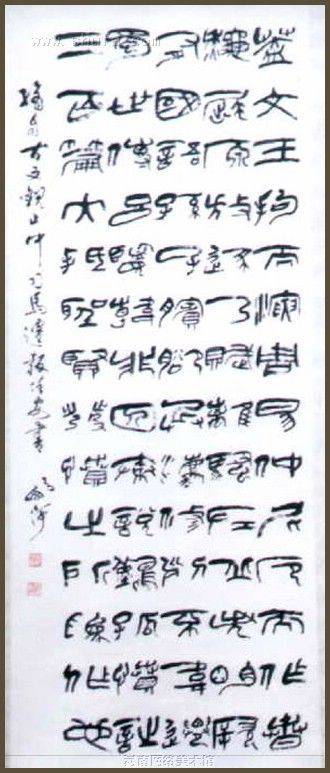 蓋文王拘而演周易仲尼厄而作春
秋屈原放逐乃賦離騷左丘失明厥
有國語孫子臏腳兵法修列不韋遷
蜀世傳呂覽韓非囚秦說難孤憤詩
三百篇大氐聖賢發憤之所為作也
自古文觀止中司馬遷報任安書
海南网络美术馆